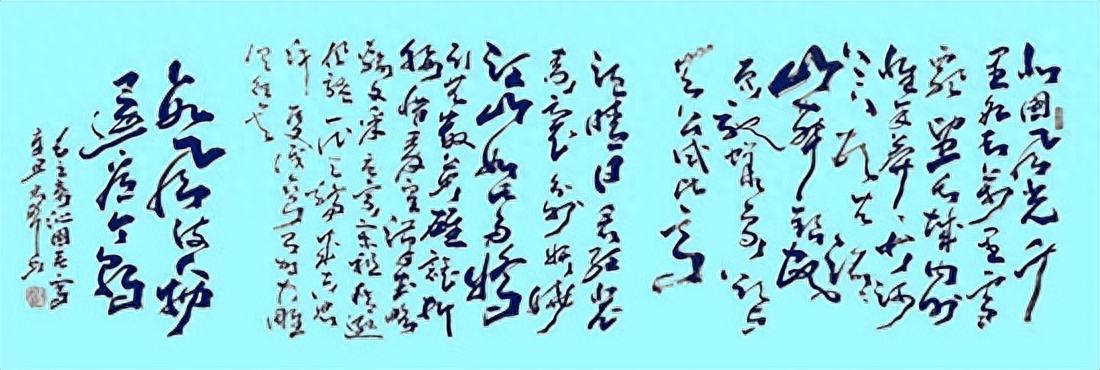 北国风光千
里冰封万里雪
飘望长城内外
惟余莽莽大河
上下顿失滔滔
山舞银蛇
原驰蜡象欲与
天公试比高
须晴日看红装
素裹分外妖娆
江山如此多娇
引无数英雄竞折
腰惜秦皇汉武略
输文采唐宗宋祖稍逊
风骚一代天骄成吉思
汗只识弯弓射大雕
俱往矣
数风流人物
还看今朝
毛主席沁园春雪